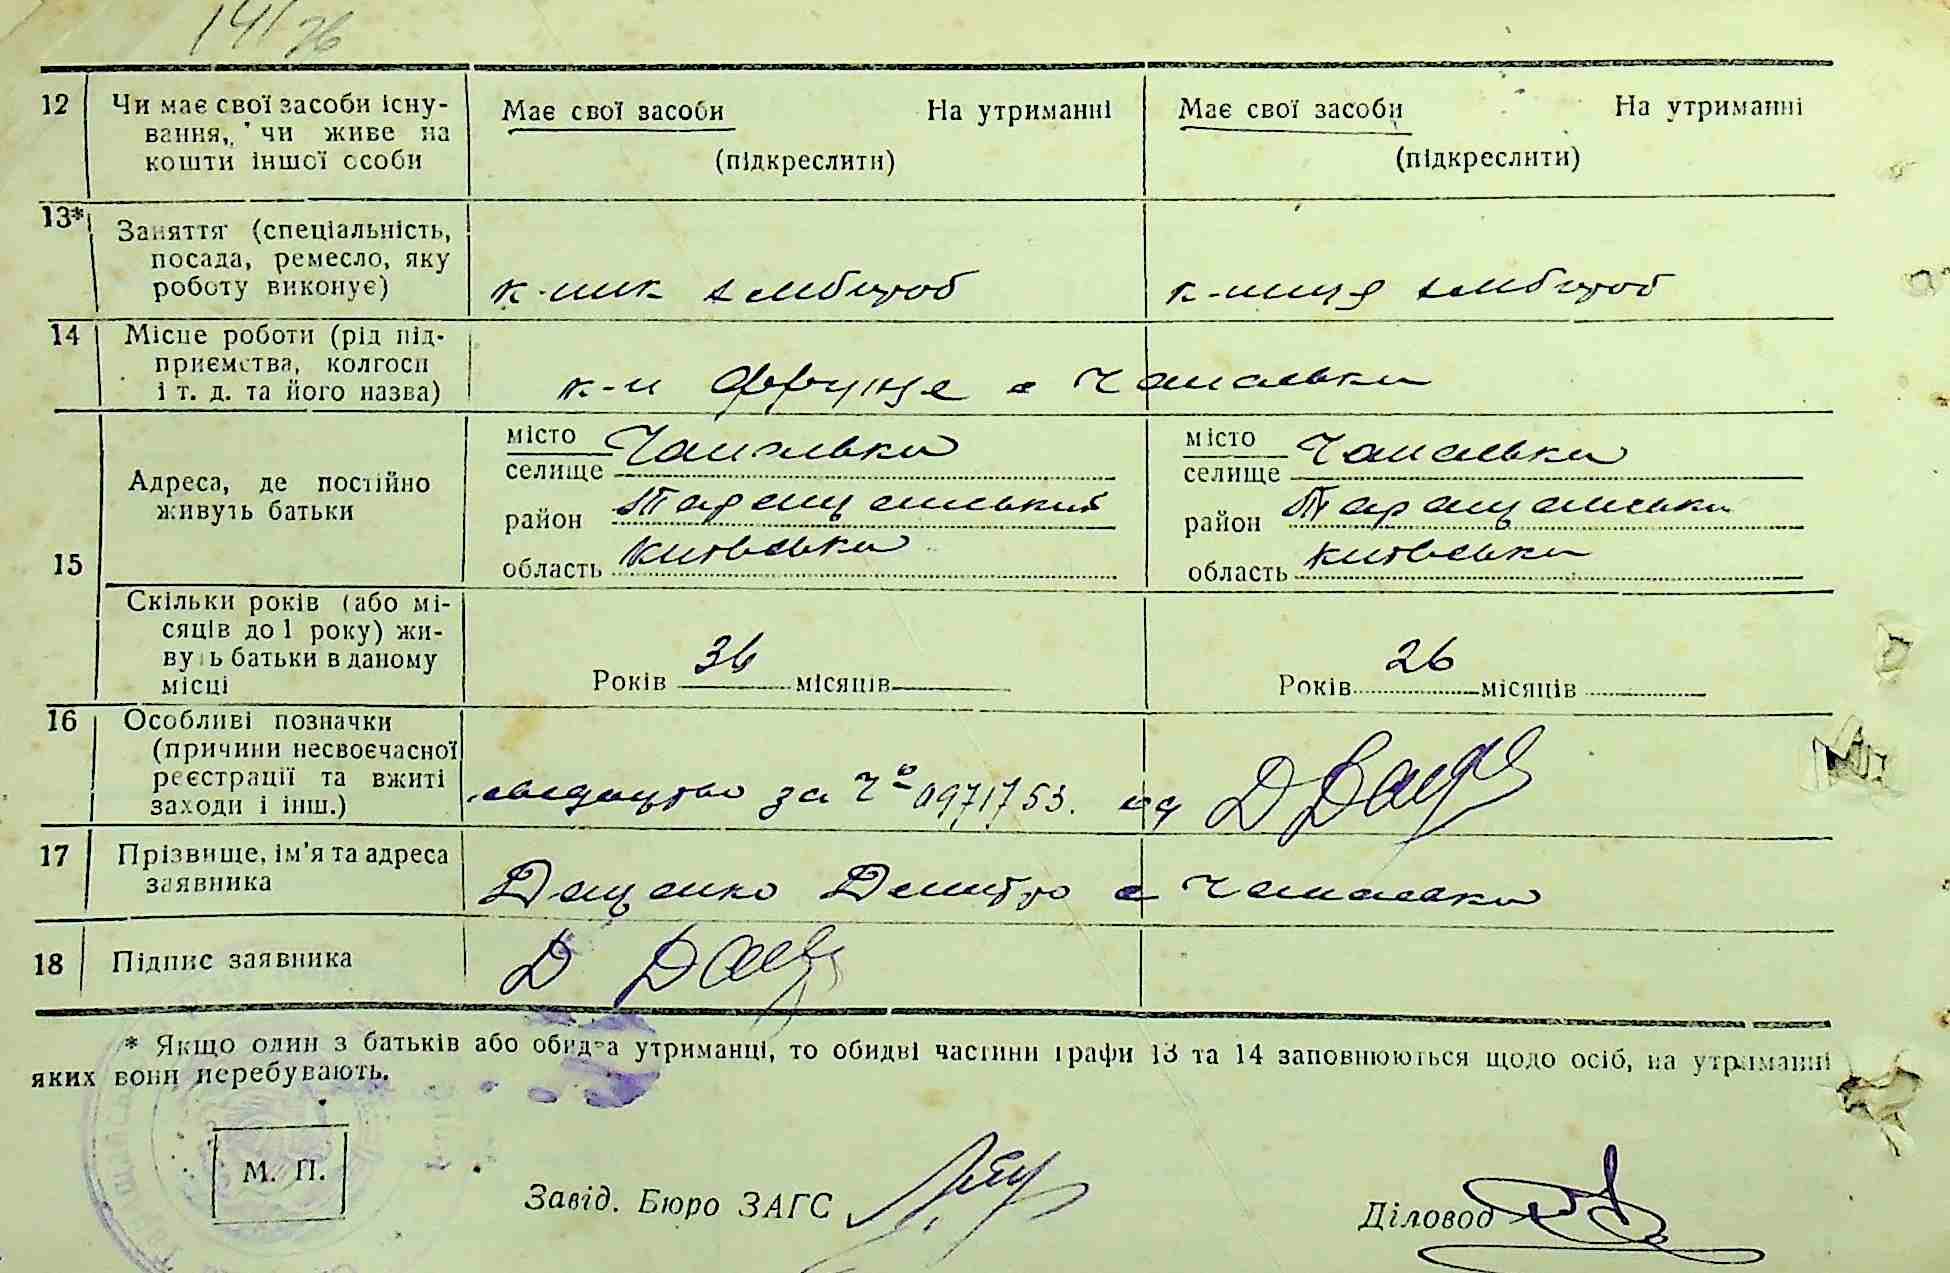 14/26
12 Чи має свої засоби існу- Має свої засоби На утриманні Має свої засоби На утриманні
вання, чи живе на
кошти іншої особи (підкреслити) (підкреслити)
13* Заняття (спеціальність,
посада, ремесло, яку
роботу виконує) к-ник хлібороб к-ниця хлібороб
14 Місце роботи (рід під-
приємства, колгосп
і т. д. та його назва) к-п Фрунзе с Чапаєвка
15 Адреса, де постійно
живуть батьки
місто Чапаєвка місто Чапаєвка
селище селище
район Таращанський район Таращанський
область Київська область Київська
Скільки років (або мі-
сяців до 1 року) жи-
вуть батьки в даному
місці Років 36 місяців Років 26 місяців
16 Особливі позначки
(причини несвоєчасної
реєстрації та вжиті
заходи і інш.) свідоцтво за № 0971753.
17 Прізвище, ім'я та адреса
заявника Даценко Дмитро с Чапаєвка
18 Підпис заявника Д Дац
* Якщо один з батьків або обидва утриманці, то обидві частини графи 13 та 14 заповнюються щодо осіб, на утриманні
яких вони перебувають.
М. П.
Завід. Бюро ЗАГС Діловод